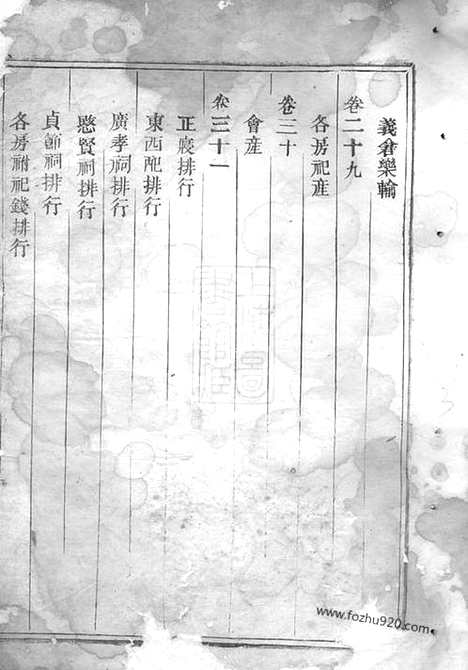 義倉樂輸
卷二十九
各房祀産
卷三十
會産
卷三十一
正寢排行
東西配排行
廣孝祠排行
愍賢祠排行
貞節祠排行
各房祔祀錢排行
www.fozhu920.com